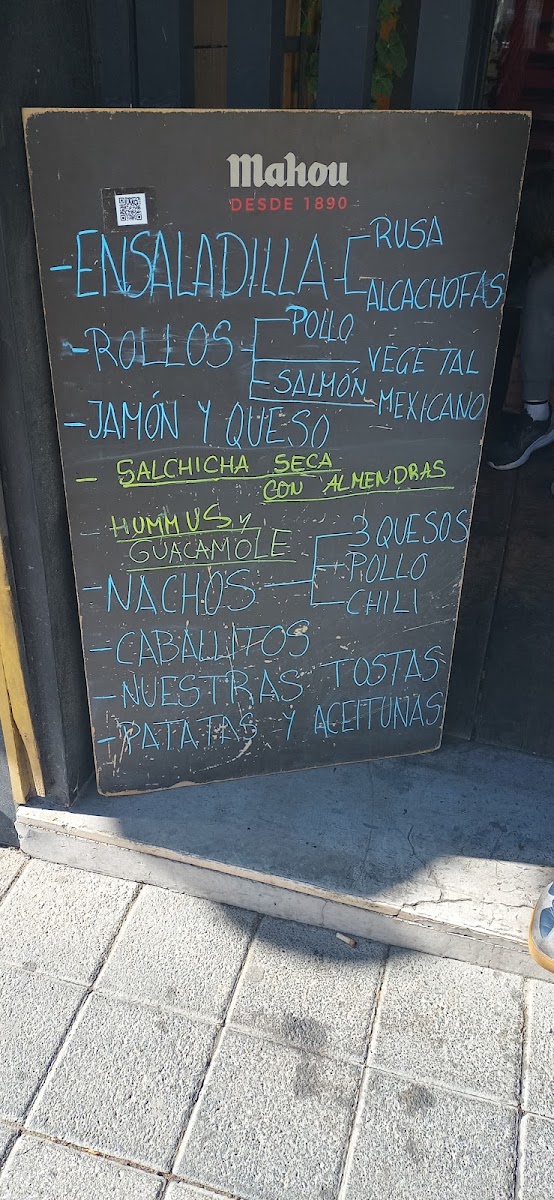 Mahou
DESDE 1890
-ENSALADILLA
RUSA
ALCACHOFAS
-ROLLOS
POLLO
VEGETAL
SALMÓN
MEXICANO
-JAMÓN Y QUESO
- SALCHICHA SECA
CON ALMENDRAS
- HUMMUS y
GUACAMOLE
-NACHOS
3 QUESOS
POLLO
CHILI
-CABALLITOS
-NUESTRAS TOSTAS
-PATATAS Y ACEITUNAS